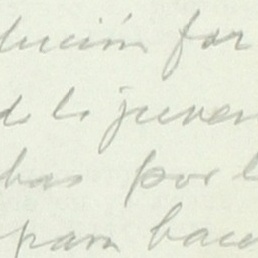 lución for
de la juven
bas por l
para hace